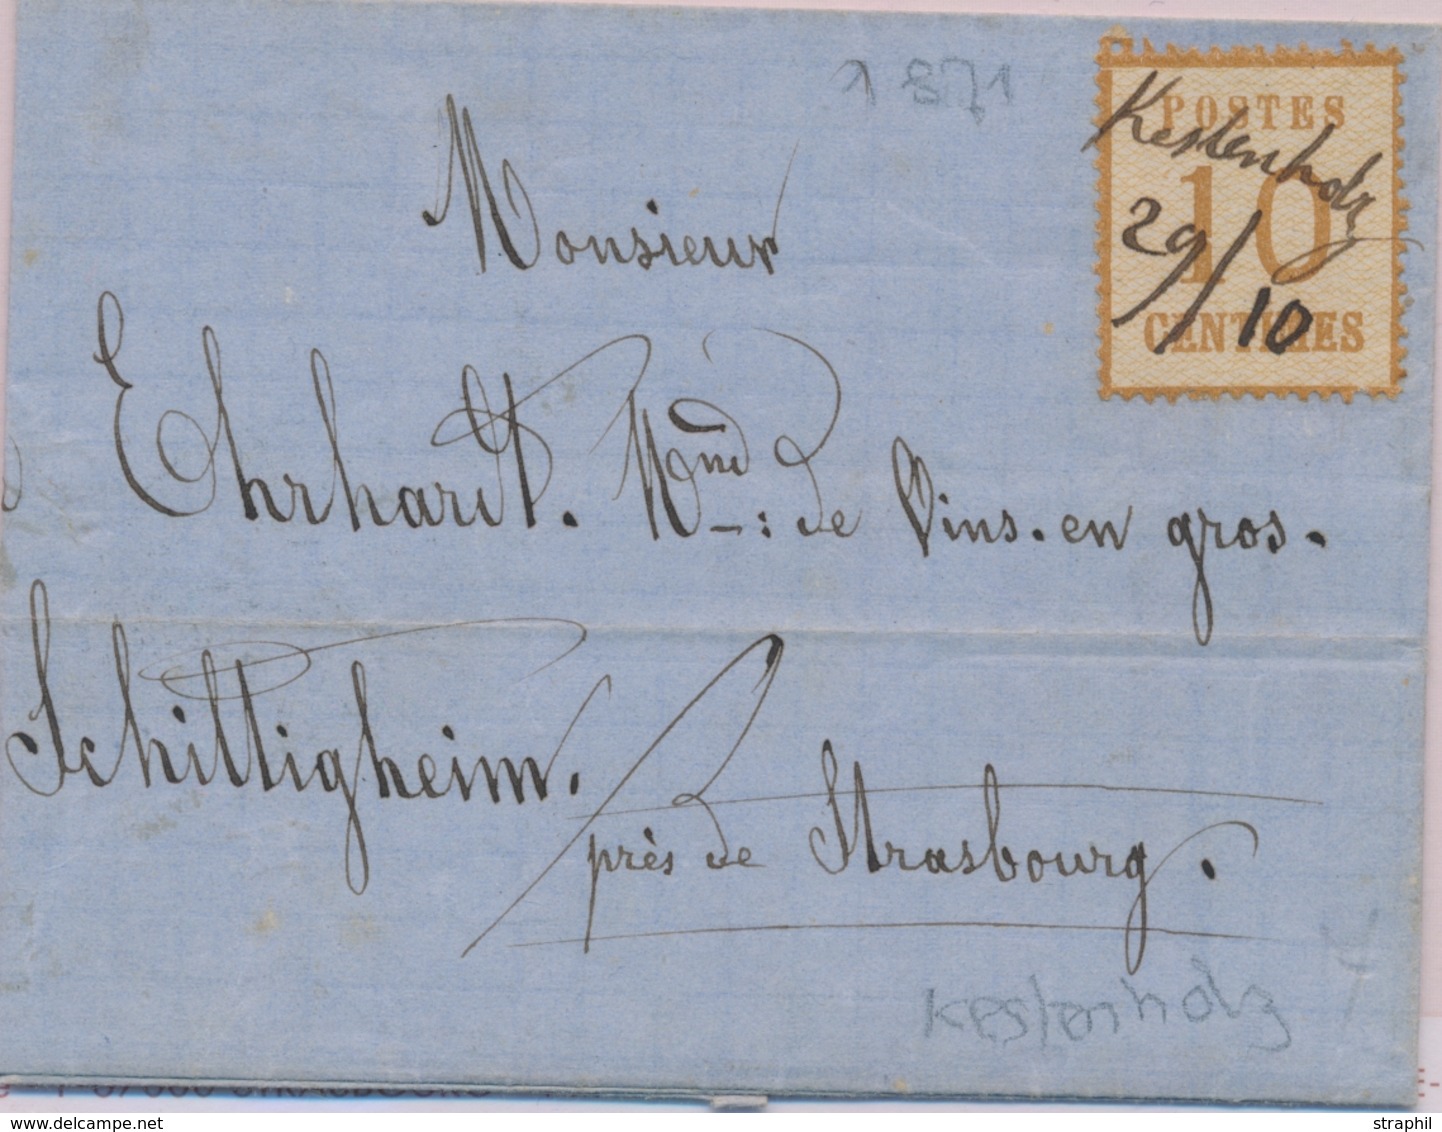 1871
POSTES
10
CENTIMES
Kestenholz
29/10
Monsieur
Ehrhardt. Md: de Vins. en gros.
Schiltigheim.
près de Strasbourg.
Kestenholz
straphil